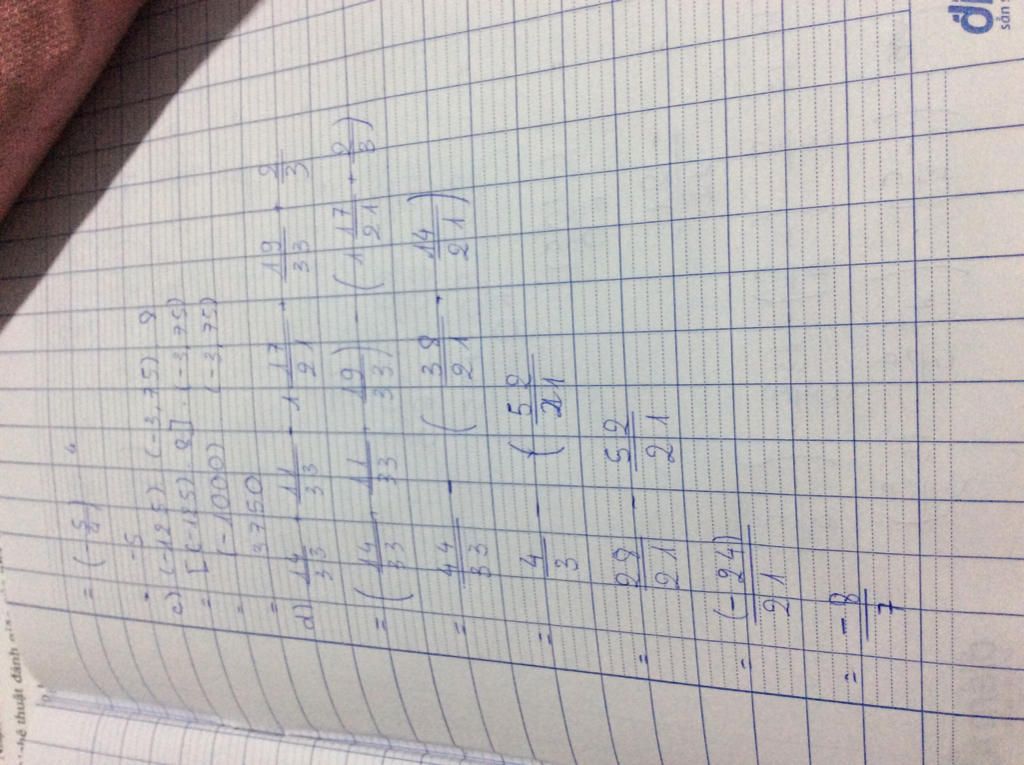 thuật đánh
= -5
c) (-125) . (-3,75) . 8
= [(-125) . 8] . (-3,75)
= (-1000) . (-3,75)
= 3750
d) 14/33 + 11/33 - 1 17/21 + 19/33 - 2/3
= (14/33 + 11/33 + 19/33) - (1 17/21 + 2/3)
= 44/33 - (38/21 + 14/21)
= 4/3 - (52/21
= 28/21 - 52/21
= (-24)/21
= -8/7
sản